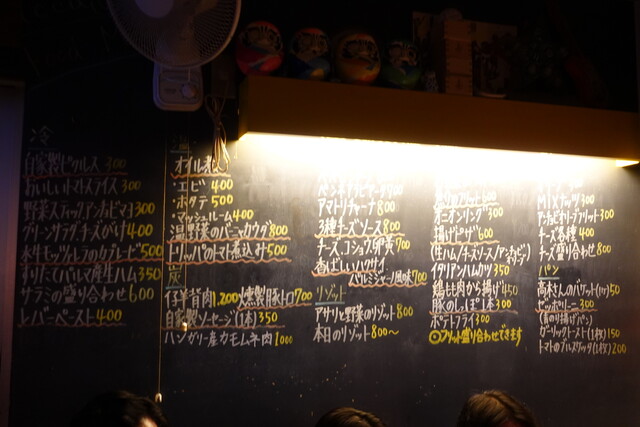 冷
自家製ピクルス 300
おいしいトマトスライス 300
野菜スティックアンチョビマヨ 300
グリーンサラダチーズがけ 400
水牛モッツァレラのカプレーゼ 500
切りたてパルマ産生ハム 350
サラミの盛り合わせ 600
レバーペースト 400
温
オイル煮
・エビ 400
・ホタテ 500
・マッシュルーム 400
温野菜のバーニャカウダ 800
トリッパのトマト煮込み 500
炭
仔羊背肉 1.200 燻製豚トロ 700
自家製ソーセージ(1本) 350
ハンガリー産カモムネ肉 1000
ペンネアラビアータ 700
アマトリチャーナ 800
3種チーズソース 800
チーズ、コショウ、卵黄 700
香ばしいパン
リゾット
アサリと野菜のリゾット 800
本日のリゾット 800〜
オニオンリング 300
揚げピザ 600
(生ハム/チーズソース/アンチョビ)
イタリアンハムカツ 350
鶏もも肉から揚げ 450
豚のしっぽ1本 300
ポテトフライ 300
◎フリット盛り合わせできます
MIXナッツ 300
アンチョビオリーブフリット 300
チーズ各種 400
チーズ盛り合わせ 800
パン
高木さんのバゲット(1ヶ) 50
ゼッポリーニ 300
(青のり揚げパン)
ガーリックトースト(1枚) 150
トマトのブルスケッタ(1枚) 200